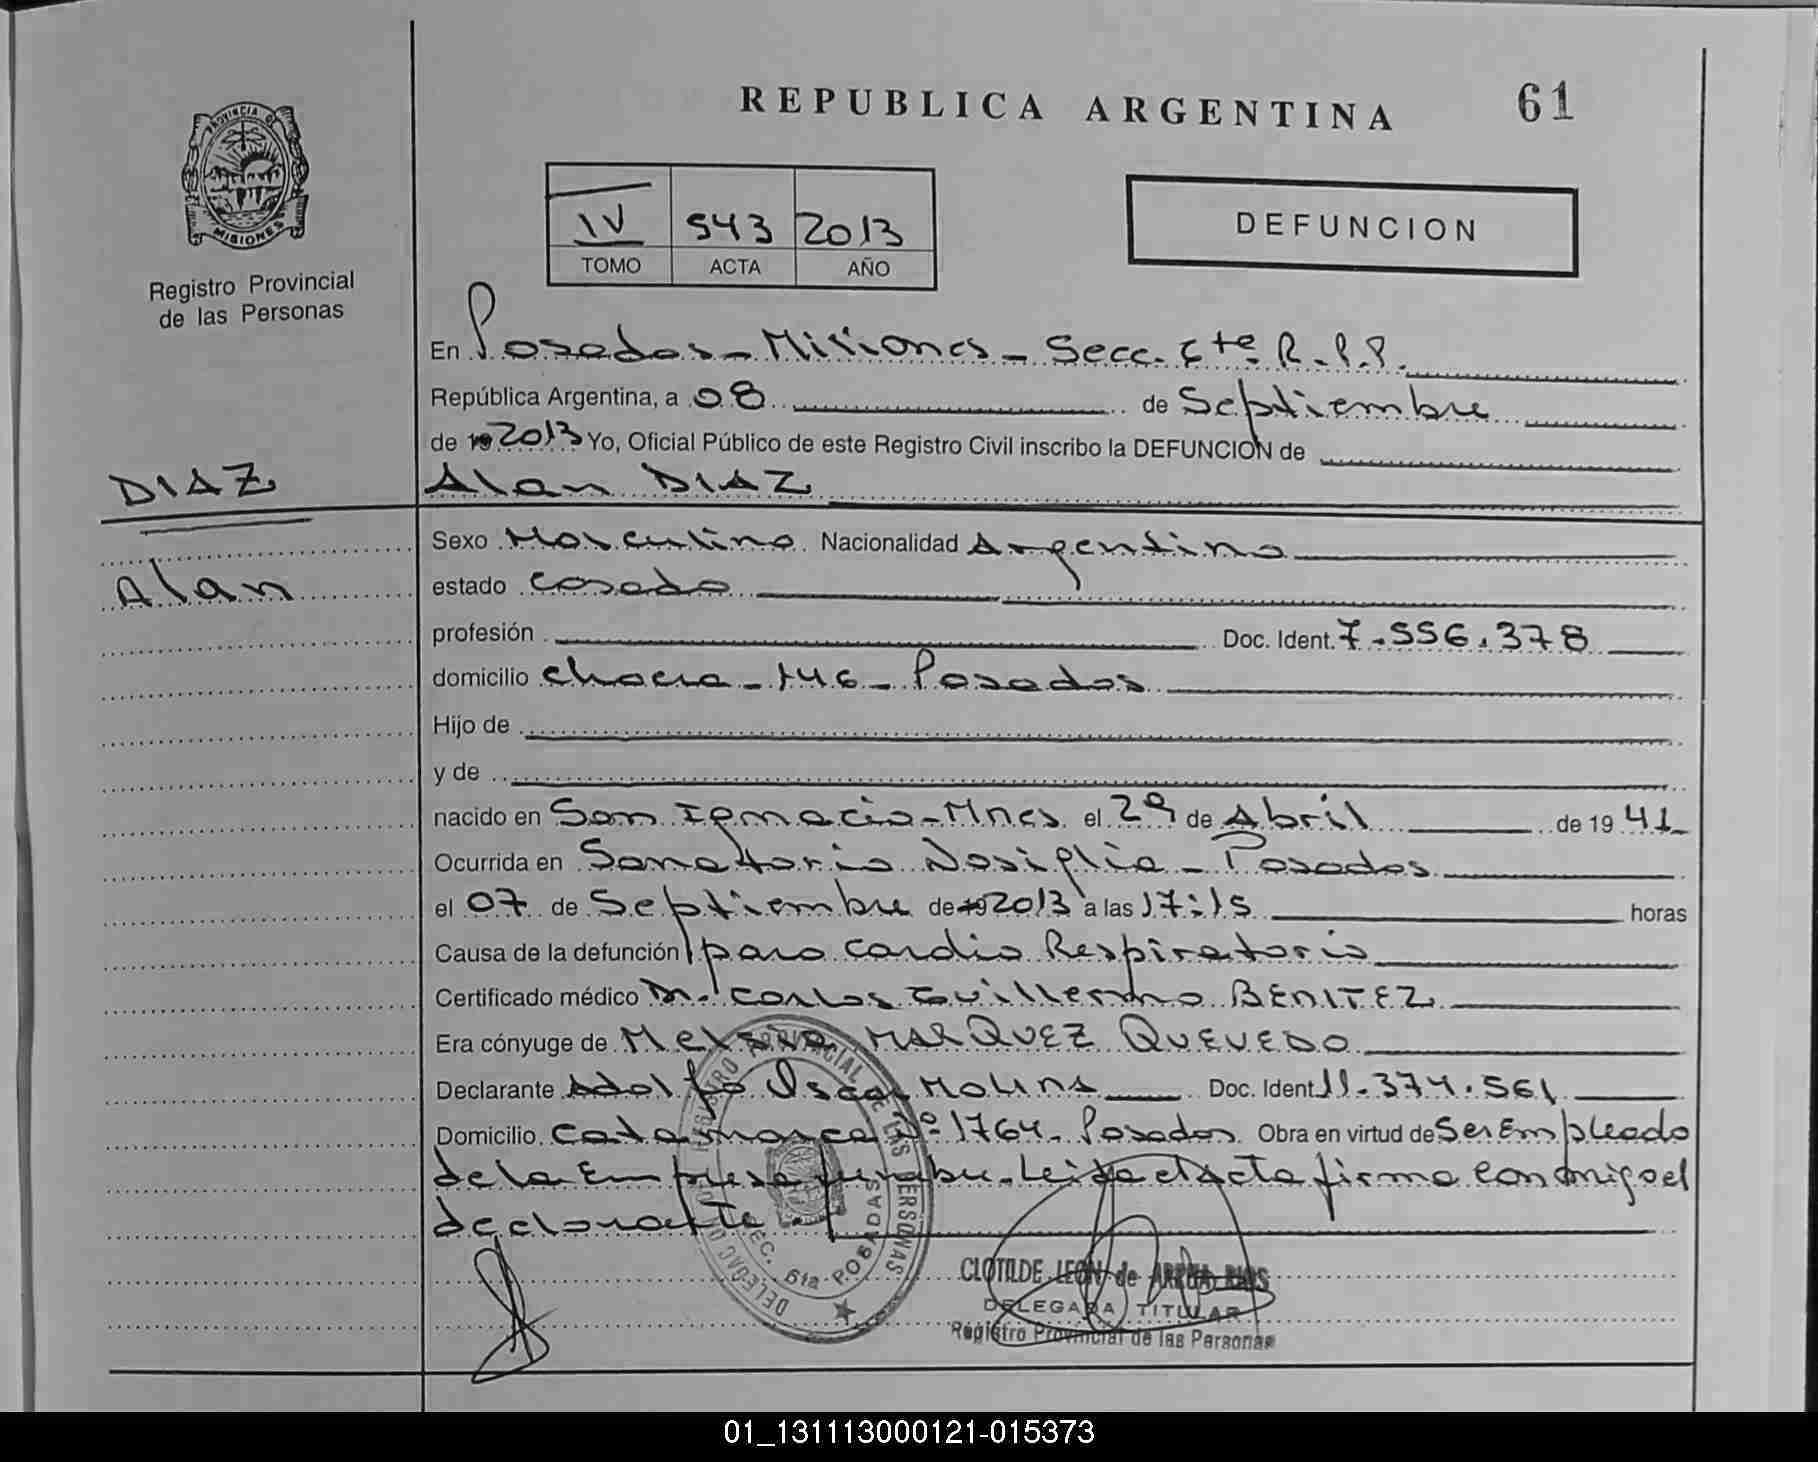 REPUBLICA ARGENTINA 61
PROVINCIA DE MISIONES
Registro Provincial
de las Personas
IV 543 2013
TOMO ACTA AÑO
DEFUNCION
En Posadas - Misiones - Secc. 6ta R.P.P.
República Argentina, a 08 de Septiembre
de 19 2013 Yo, Oficial Público de este Registro Civil inscribo la DEFUNCION de
DIAZ
Alan DIAZ
Alan
Sexo Masculino Nacionalidad Argentina
estado casado
profesión Doc. Ident. 7.556.378
domicilio chacra - 146 - Posadas
Hijo de
y de
nacido en San Ignacio - Mnes el 29 de Abril de 19 41
Ocurrida en Sanatorio Nosiglia - Posadas
el 07 de Septiembre de 19 2013 a las 17:15 horas
Causa de la defunción paro cardio Respiratorio
Certificado médico Dr. Carlos Guillermo BENITEZ
Era cónyuge de MARQUEZ QUEVEDO
Declarante Adolfo Oscar Molina Doc. Ident 11.374.561
Domicilio Catamarca Nº 1764 - Posadas Obra en virtud de Ser Empleado
de la Empresa funebre. Leida el Acta firma conmigo el
declarante.
DELEGACION REGISTRO PROVINCIAL DE LAS PERSONAS
SEC. 6ta - POSADAS
CLOTILDE LEON de
DELEGADA TITULAR
Registro Provincial de las Personas
01_131113000121-015373